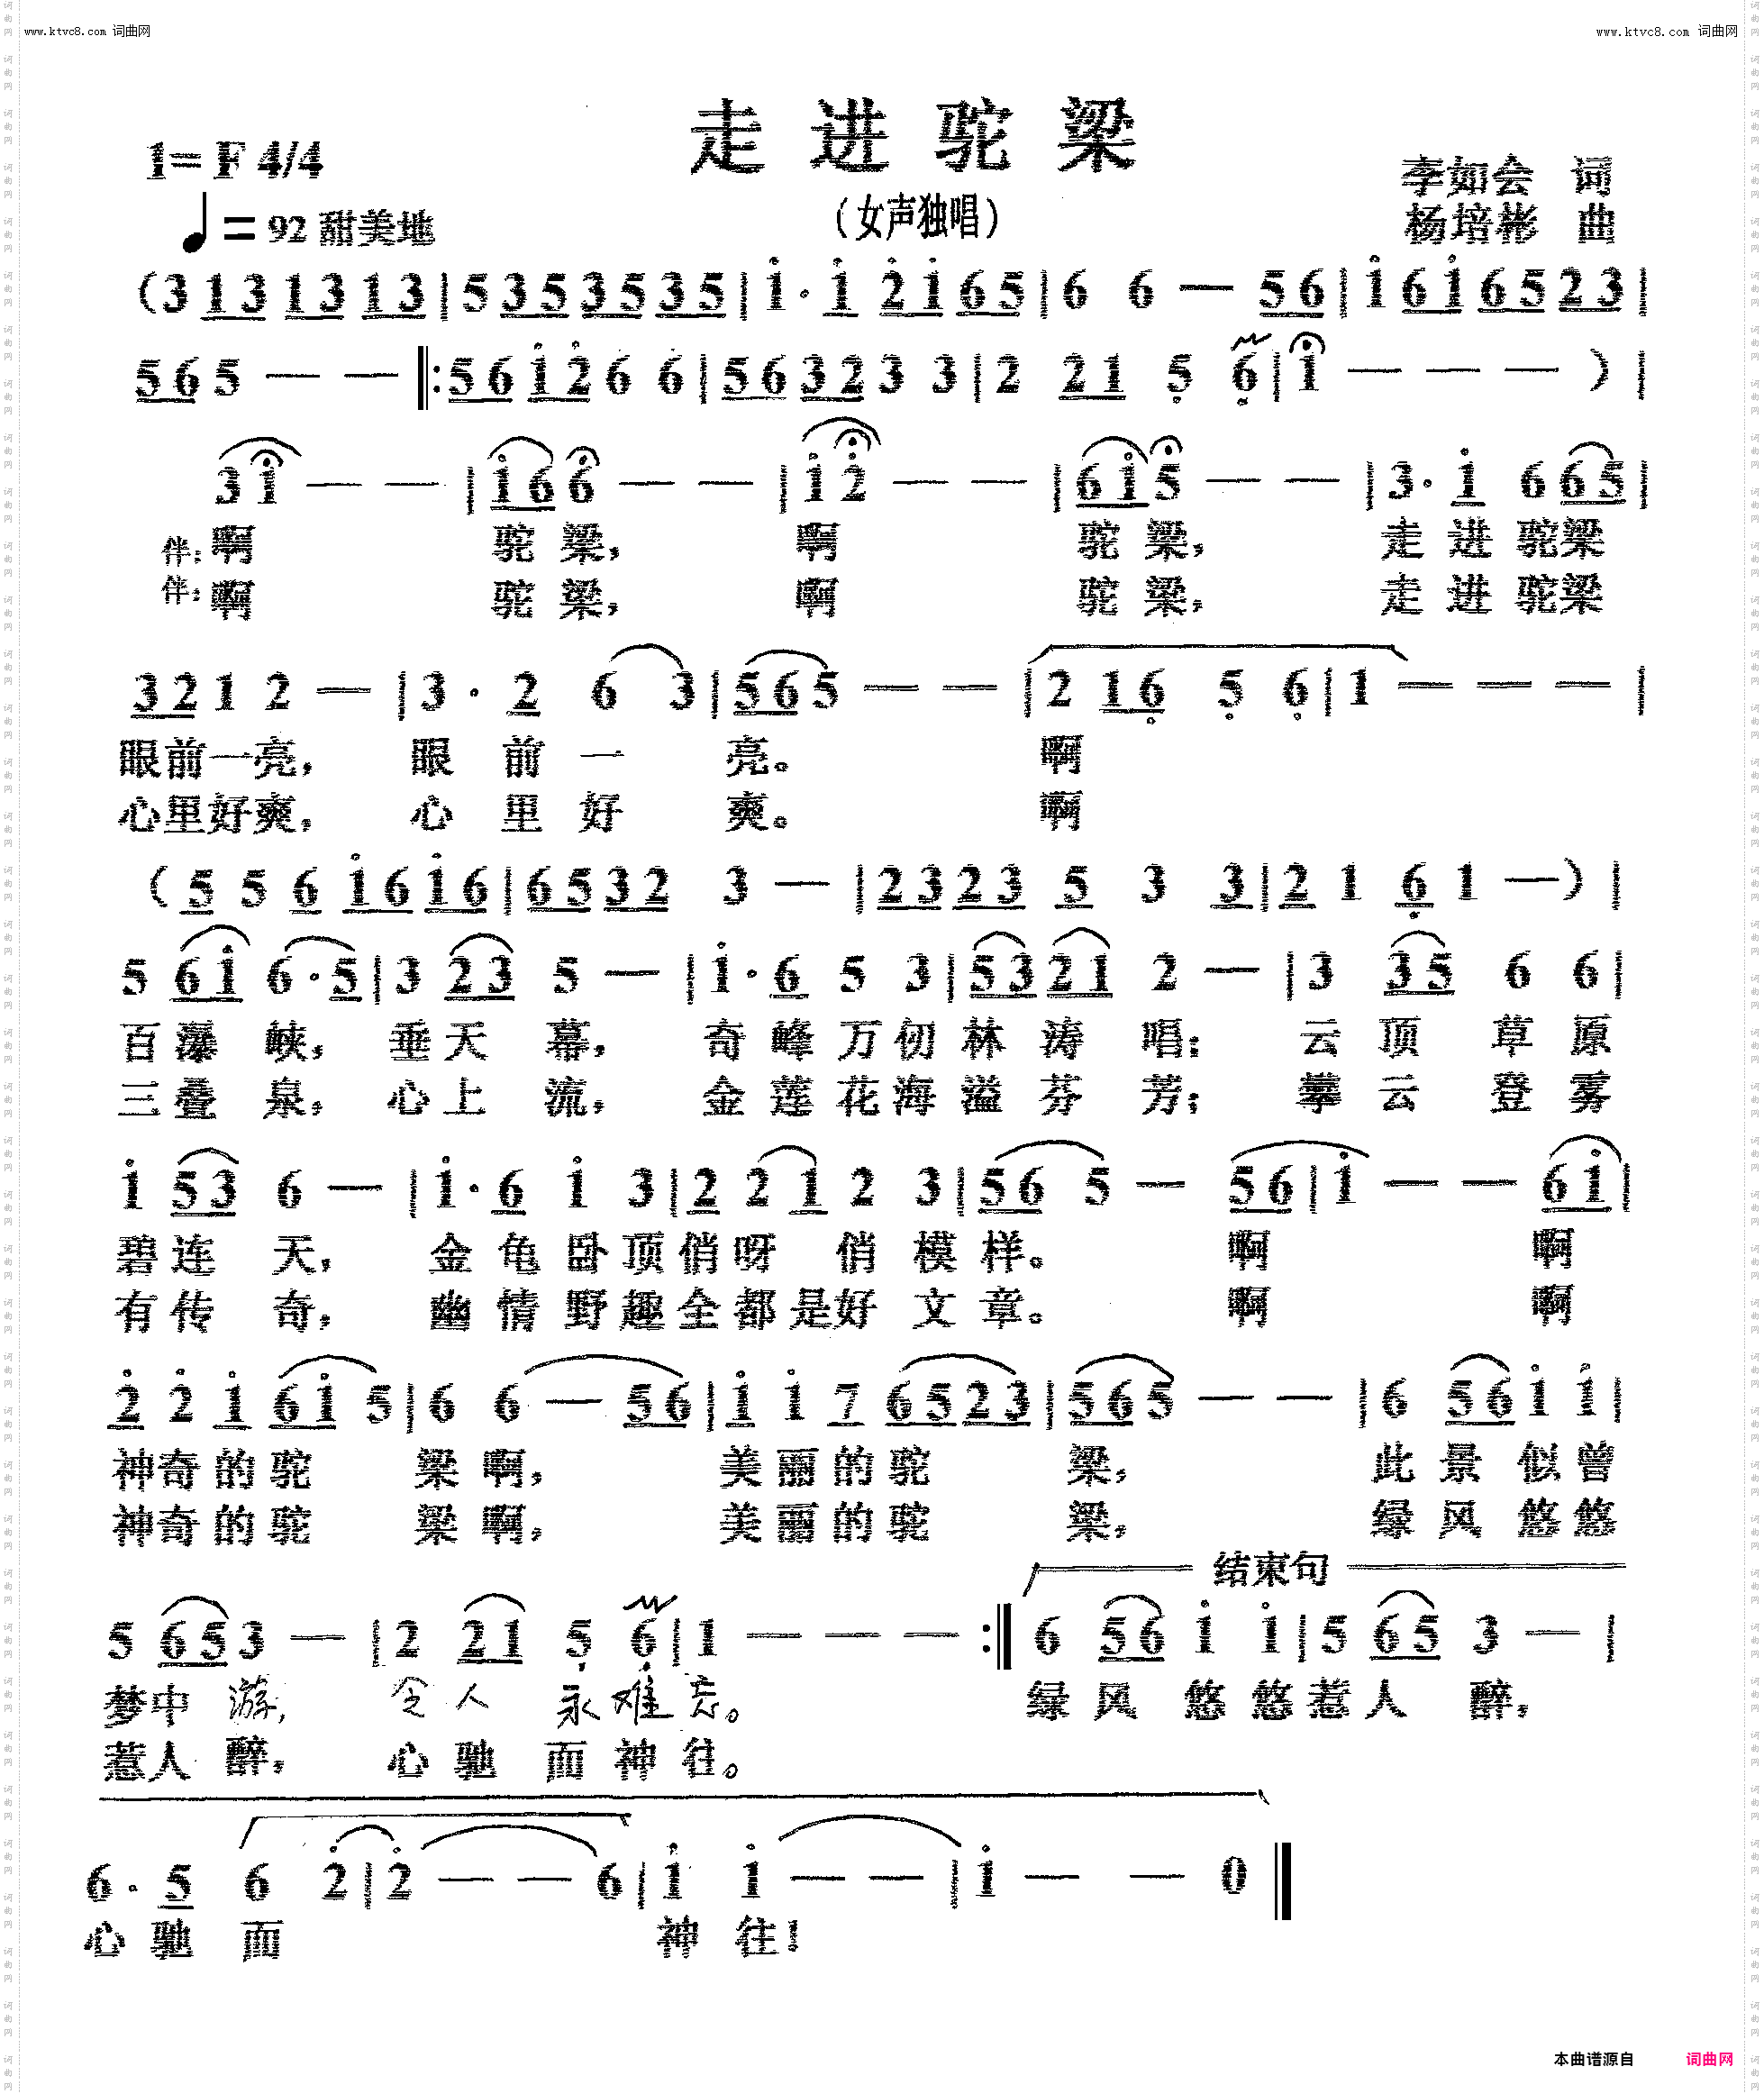 www.ktvc8.com 词曲网
www.ktvc8.com 词曲网
走进驼梁
1=F 4/4
李如会 词
(女声独唱)
杨培彬 曲
♩=92 甜美地
(3 1 3 1 3 1 3|5 3 5 3 5 3 5|i·i 2 i 6 5|6 6 — 5 6|i 6 i 6 5 2 3|
5 6 5 — —‖:5 6 i 2 6 6|5 6 3 2 3 3|2 2 1 5 6|i — — — )|
3 i — —|i 6 6 — —|i 2 — —|6 i 5 — —|3·i 6 6 5|
伴:啊 驼梁, 啊 驼梁, 走进驼梁
伴:啊 驼梁, 啊 驼梁, 走进驼梁
3 2 1 2 —|3·2 6 3|5 6 5 — —|2 1 6 5 6|1 — — —|
眼前一亮, 眼前一亮。 啊
心里好爽, 心里好爽。 啊
(5 5 6 i 6 i 6|6 5 3 2 3 —|2 3 2 3 5 3 3|2 1 6 1 —)|
5 6 i 6·5|3 2 3 5 —|i·6 5 3|5 3 2 1 2 —|3 3 5 6 6|
百瀑峡, 垂天幕, 奇峰万仞林涛唱; 云顶草原
三叠泉, 心上流, 金莲花海溢芬芳; 攀云登雾
i 5 3 6 —|i·6 i 3|2 2 1 2 3|5 6 5 — 5 6|i — — 6 i|
碧连天, 金龟卧顶俏呀俏模样。 啊 啊
有传奇, 幽情野趣全都是好文章。 啊 啊
2 2 i 6 i 5|6 6 — 5 6|i i 7 6 5 2 3|5 6 5 — —|6 5 6 i i|
神奇的驼梁啊, 美丽的驼梁, 此景似曾
神奇的驼梁啊, 美丽的驼梁, 绿风悠悠
结束句
5 6 5 3 —|2 2 1 5 6|1 — — —:‖6 5 6 i i|5 6 5 3 —|
梦中游, 令人永难忘。 绿风悠悠惹人醉,
惹人醉, 心驰而神往。
6·5 6 2|2 — — 6|i i — —|i — — 0‖
心驰而 神往!
本曲谱源自 词曲网